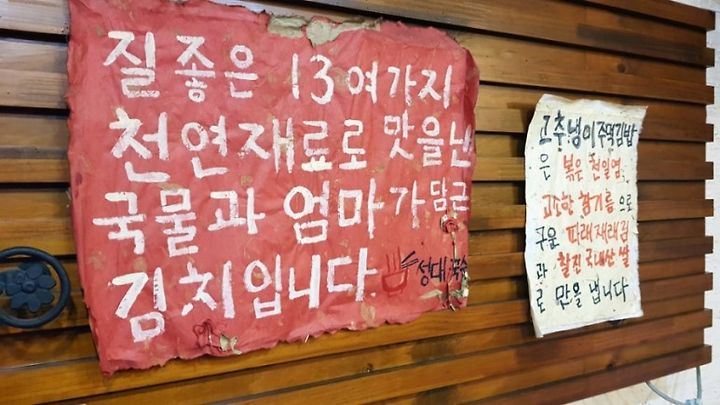 질 좋은 13여가지
천연재료로 맛을 낸
국물과 엄마가 담근
김치입니다.
성대국수
고추냉이주먹김밥
은 볶은 천일염,
고소한 참기름으로
구운 파래재래김
과 찰진 국내산 쌀
로 만을 냅니다